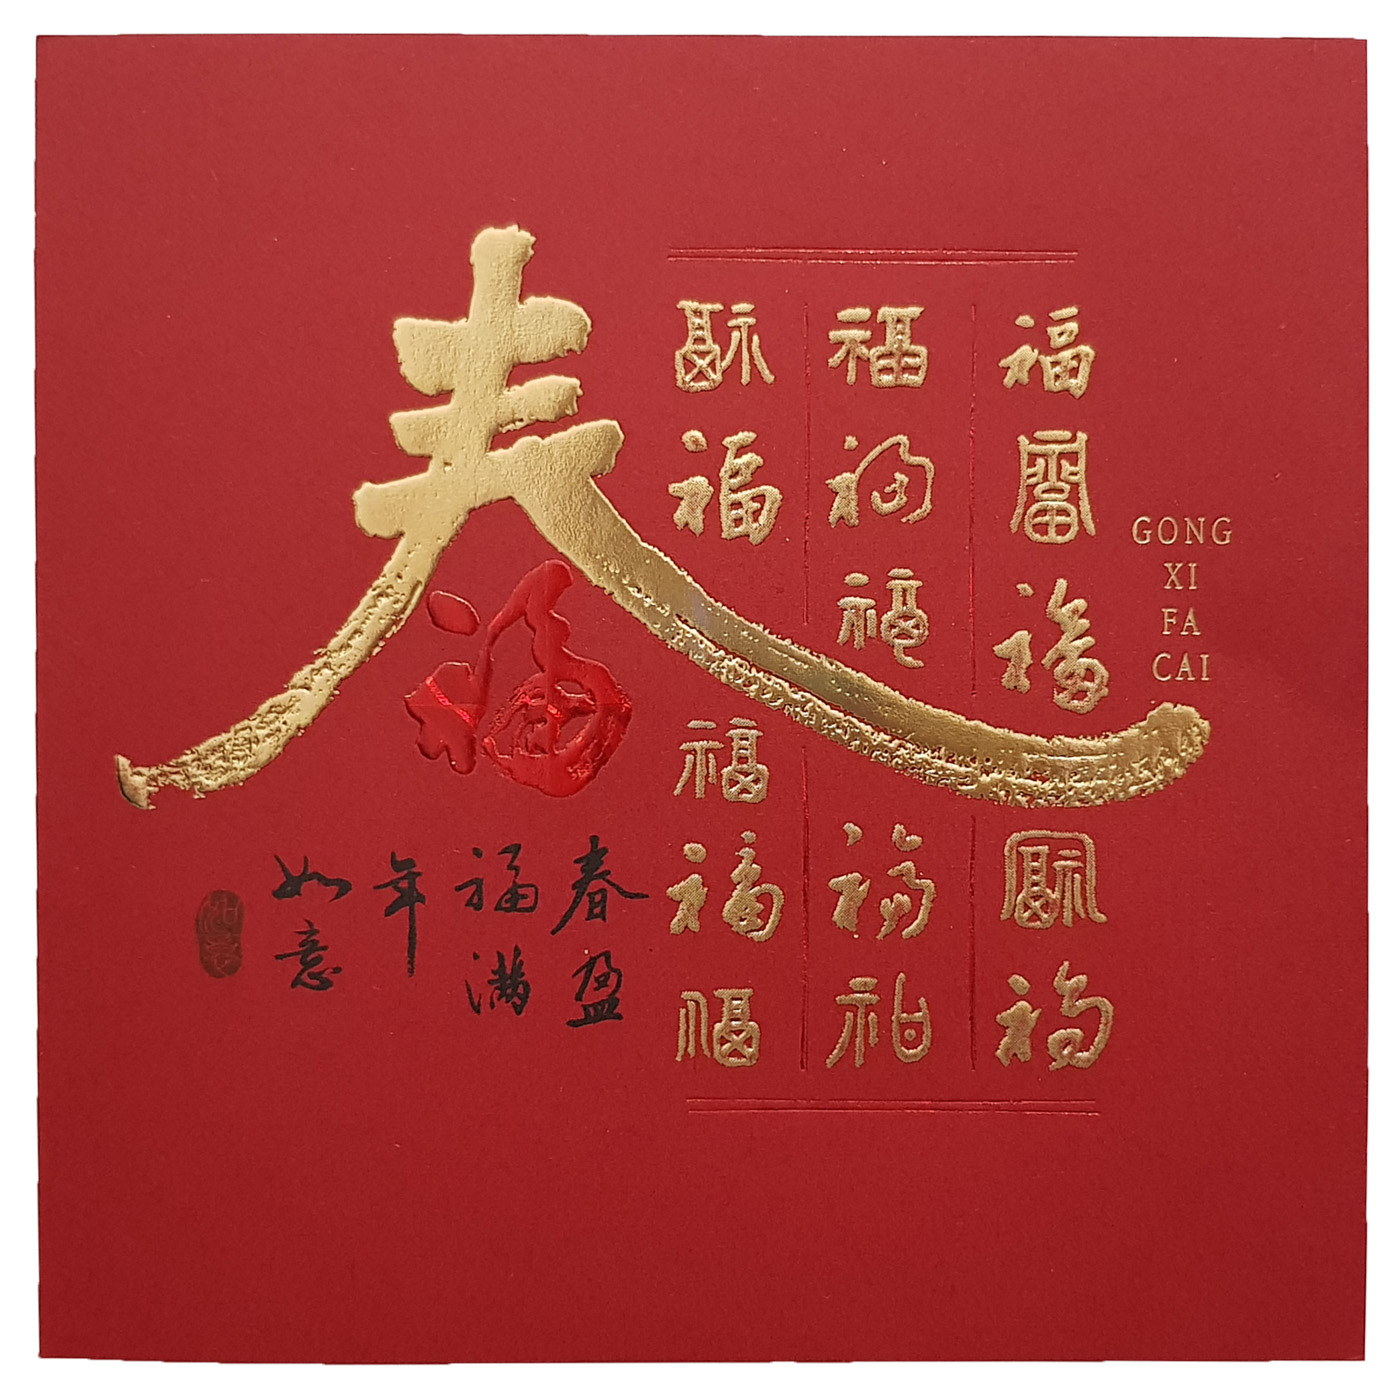 春
福
福福福福福
福福福福福
福福福福福
GONG
XI
FA
CAI
春盈
福满
年
如意